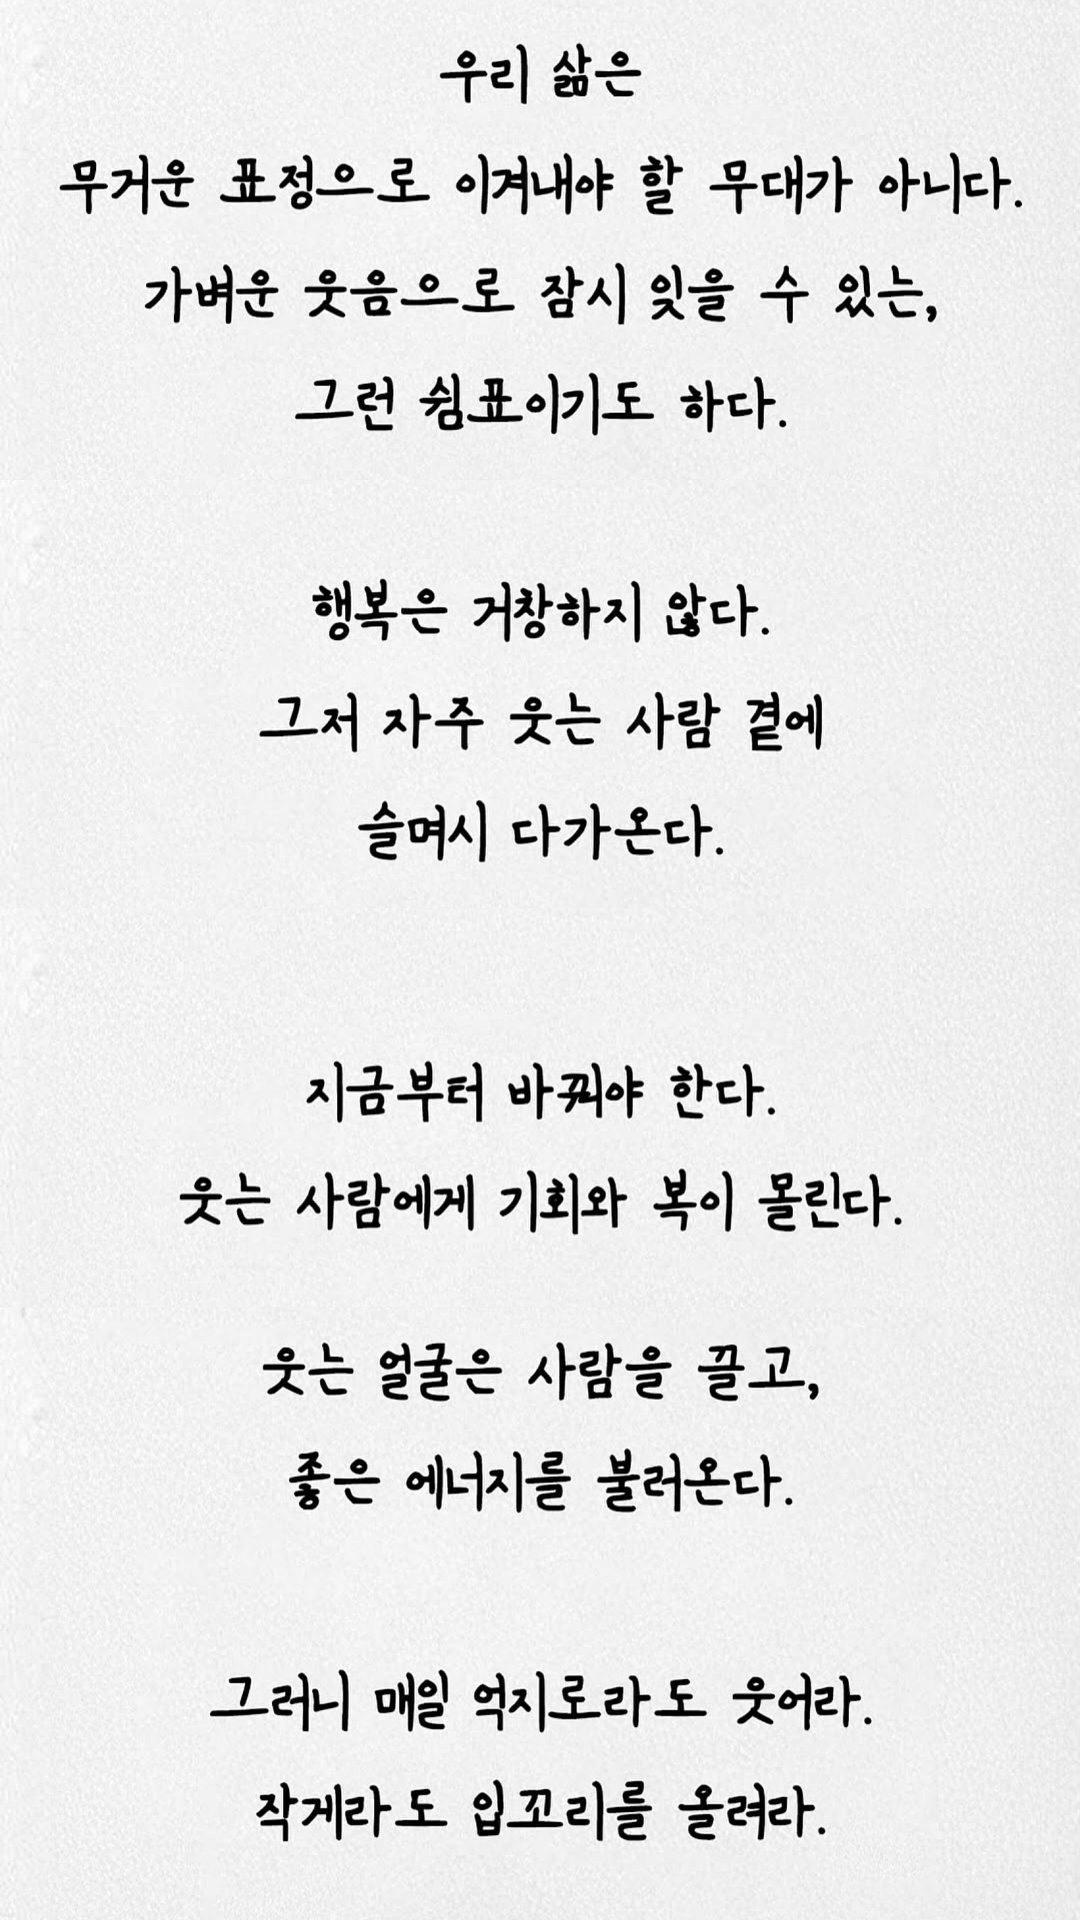 우리 삶은
무거운 표정으로 이겨내야 할 무대가 아니다.
가벼운 웃음으로 잠시 잊을 수 있는,
그런 쉼표이기도 하다.
행복은 거창하지 않다.
그저 자주 웃는 사람 곁에
슬며시 다가온다.
지금부터 바뀌야 한다.
웃는 사람에게 기회와 복이 몰린다.
웃는 얼굴은 사람을 끌고,
좋은 에너지를 불러온다.
그러니 매일 억지로라도 웃어라.
작게라도 입꼬리를 올려라.